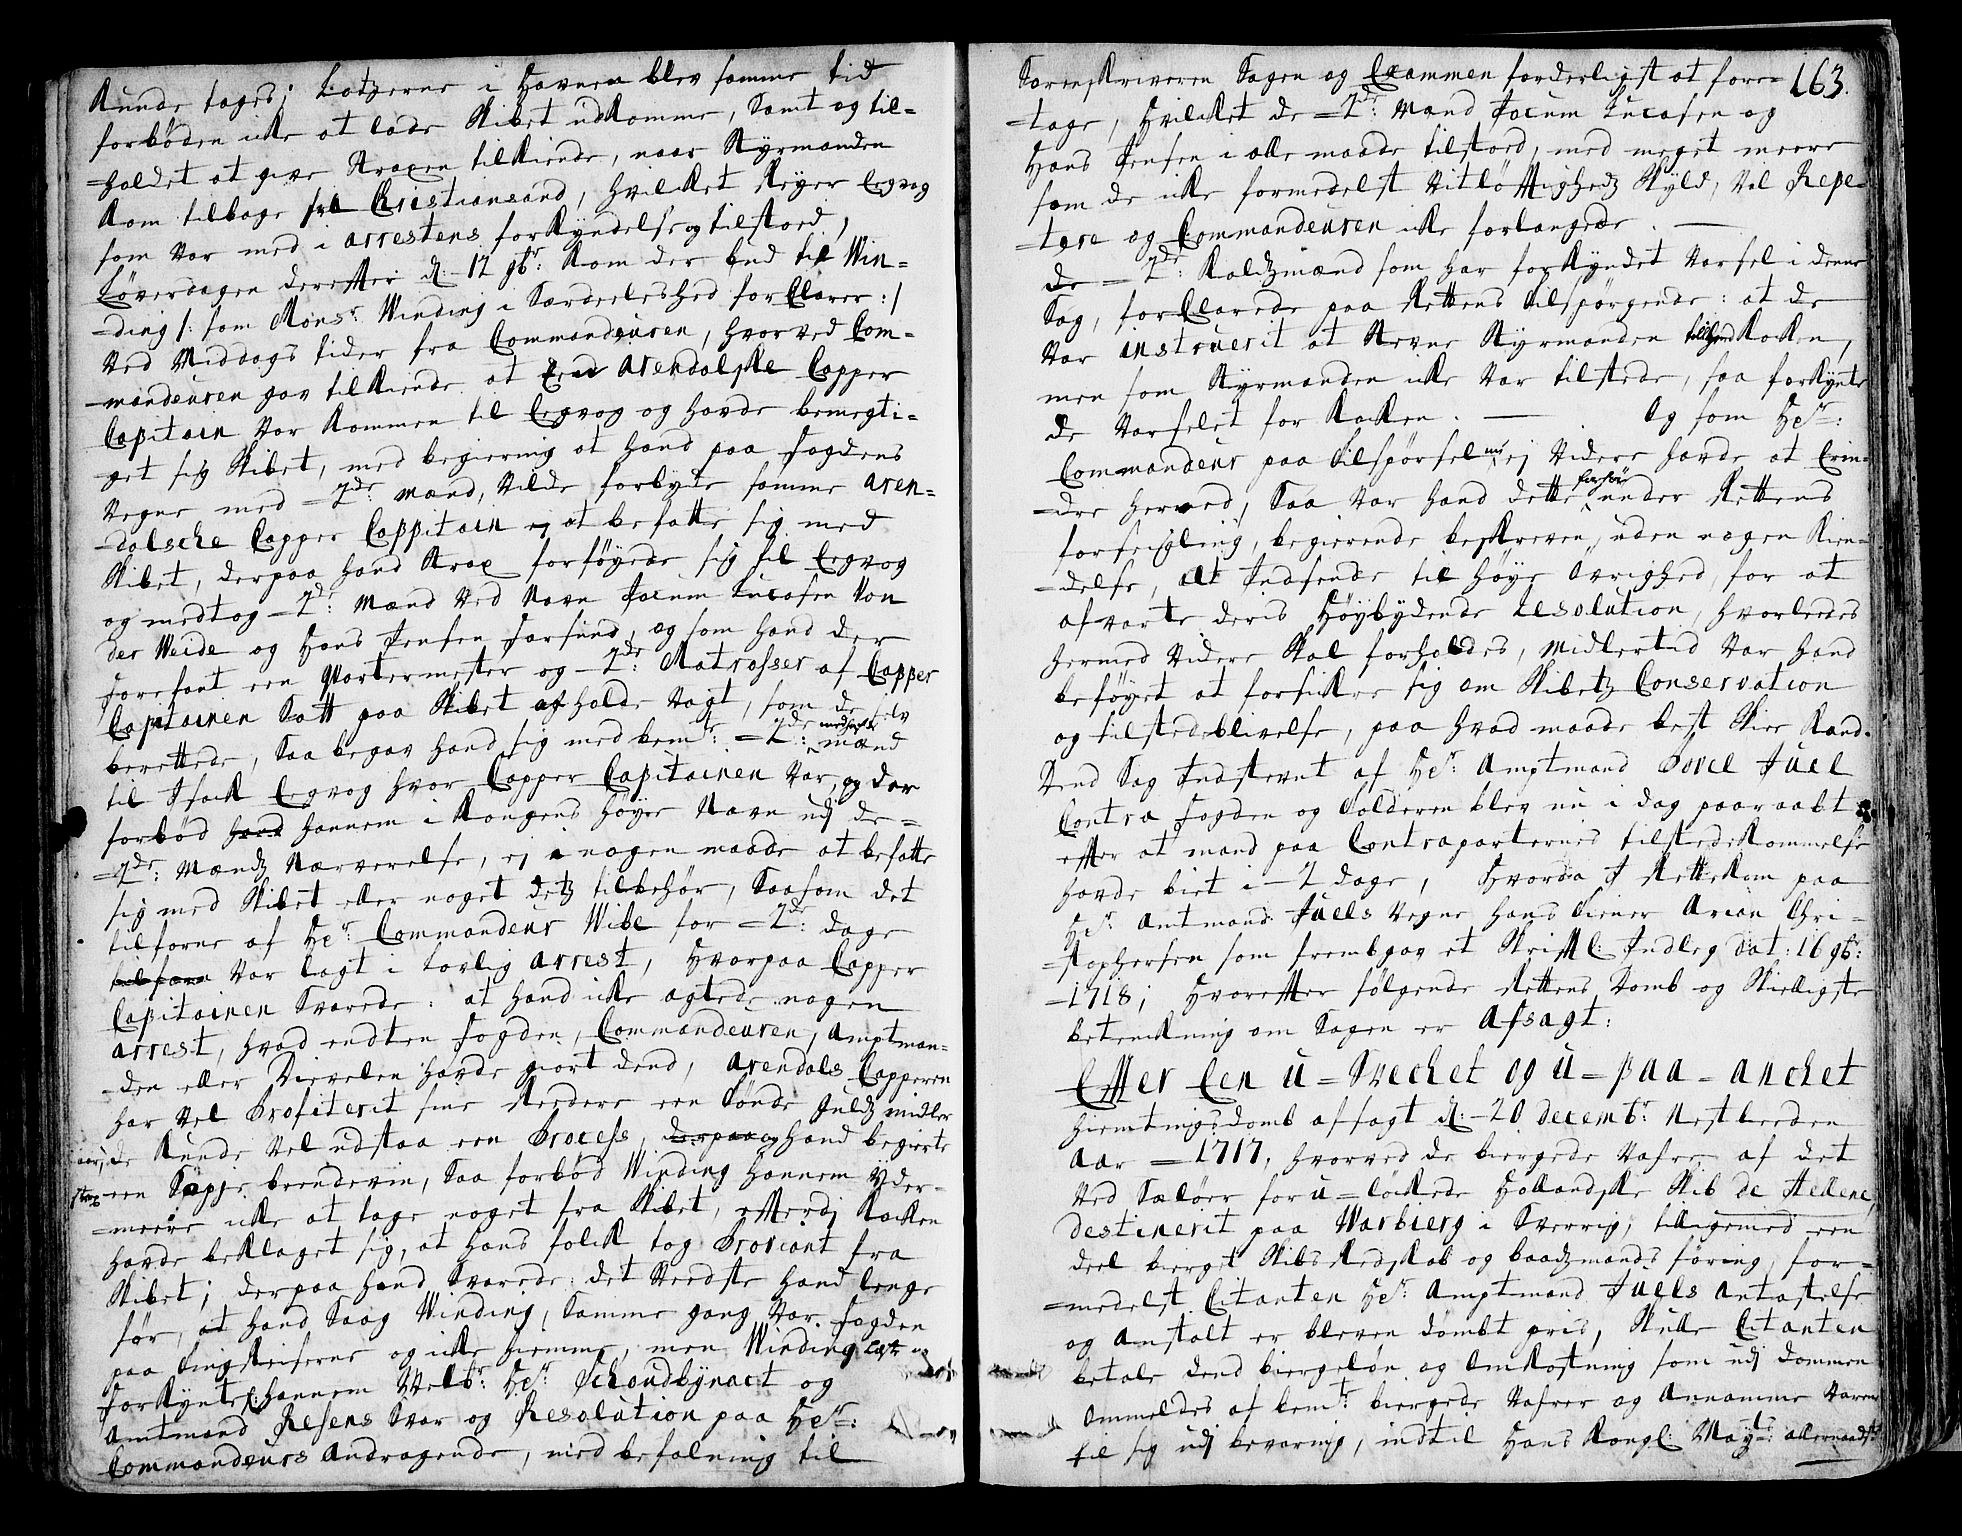 Kunde tages; Lotzerne i Havnen blev samme tid
forböden icke at lade Skibet udkomme, Samt og til-
-holdet at give Straxen tilkiende, naar Styrmanden
kom tilbage fra Christiansand, hvilket Reyer Eegvog
som var med i arrestens forkyndelse og tilstoed,
Löverdagen derefter d: 12 9br: Kom der bud til Win-
-ding /: som Monsr: Winding i Særdeleshed forclarer :/
Ved Middags tider fra Commandeuren, hvorved Com-
-mandeuren gav tilkiende at Een Arendalske Capper
Capitain var kommen til Eegvog og havde bemegti-
get sig Skibet, med begiering at hand paa Fogdens
Vegne med =2de: Mænd, vilde forbyde samme Aren-
-dalsche Capper Cappitain ej at befatte sig med
Skibet, derpaa hand Strax forföyede sig til Eegvog
og medtog =2de: Mænd ved Navn Jocum Lucasen Von
der Weide og Hans Jensen Farsund, og som hand der
forefant een Qvartermester og =2de: Matrosser af Capper
Capitainen Satt paa Skibet at holde vagt, som de selv
berettede, Saa begav hand sig med bemte: =2de: medhafde Mænd
til Isack Eegvog hvor Capper Capitainen var, og der
forböd hand hannem i Kongens höye Navn udj de=
=2de: Mændz Nærverelse, ej i nogen maade at befatte
sig med Skibet eller noget detz tilbehör, Saasom det
tilforne af Hr: Commandeur Wibe for =2de: dage
tilforn var lagt i lovlig arrest, Hvorpaa Capper
Capitainen Svarede: at hand icke agtede nogen
arrest, hvad endten Fogden, Commandeuren, Amptman-
-den eller Dievelen hafde giort dend, Arendals Capperen
har vel Profiterit sine Reedere een Tönde Guldz midler
saa, de Kunde vel udstaa een Process, derpaa og hand begierte
strax een Söpje brendeviin, Saa forböd Winding hannem Yder-
-meere icke at tage noget fra Skibet, efterdj Kocken
havde beklaget sig, at hans folck tog Proviant fra
Skibet; derpaa hand Svarede: det Veedste hand lenge
för, at hand Saag Winding, Samme gang var Fogden
paa Tingreiserne og icke hiemme, men Winding læste og
forkynte hannem Velbr: Hr: Schoudbynact og
Amtmand Resens Svar og Resolution paa Hr:
Commandeurs Andragende, med befalning til
163.
Sorenskriveren Sagen og Examen forderligst at fore=
=tage, Hvilcket de =2de: Mænd Jocum Lucasen og
Hans Jensen i alle maade tilstoed, med meget meere
som de icke formedelst Vitlöftighedz Skyld, vel Repe-
-tere og Commandeuren icke forlangede.
de =2de: Kaldzmænd som har forkyndet varsel i denne
Sag, forclarede paa Rettens tilspörgende: at de
var instruerit at Stevne Styrmanden tilligemed Kocken,
men som Styrmanden icke var tilstede, saa forkynte
de varselet for Kocken. Og som Hr:
Commandeur paa tilspörsel nu ej videre hafde at Erin-
-dre herved, Saa var hand dette forhör under Rettens
forseigling, begierende beskreven, uden nogen Kien-
-delse, at Indsende til höye Övrighed, for at
afvarte deris Höybydende Resolution, hvorledes
hermed videre Skal forholdes, Midlertid var hand
beföyet at forsickre sig om Skibetz Conservation
og tilstedeblivelse, paa hvad maade best Skee Kand.
Dend Sag Indstevnt af Hr: Amptmand Povel Juel
Contra Fogden og Tolderen blev nu i dag paaraabt
efter at mand paa Contraparternes tilstedekommelse
havde biet i =2 dage, Hvorda I Rettekom paa
Hr: Amtmand Juels vegne hans tiener Arian Chri-
-stophersen som fremgav et Skriftl: Indleg dat: 16 9br:
-1718; Hvorefter fölgende Rettens Domb og Skielligste
betenckning om Sagen er Afsagt:
Efter Een u=Svechet og u=paa=anchet
hiemtingsdomb afsagt d: 20 decembr: Nestleeden
Aar =1717, hvorved de biergede Vahre af det
ved Sælöer foru=löckede Hollandske Skib de Hellene
destinerit paa Warbierg i Sverrig, tilligemed een
deel bierget Skibs Redskab og baadzmands föring, for-
=medelst Citanten Hr: Amptmand Juels Antastelse
og Anstalt er bleven dömbt priis, Skulle Citanten
betale dend biergelön og Omkostning som udj Dommen
Ommeldes af bemte: biergede Vahrer og Annamme Varene
til sig udj bevaring, indtil Hans Kongl: Mayts: allernaadste